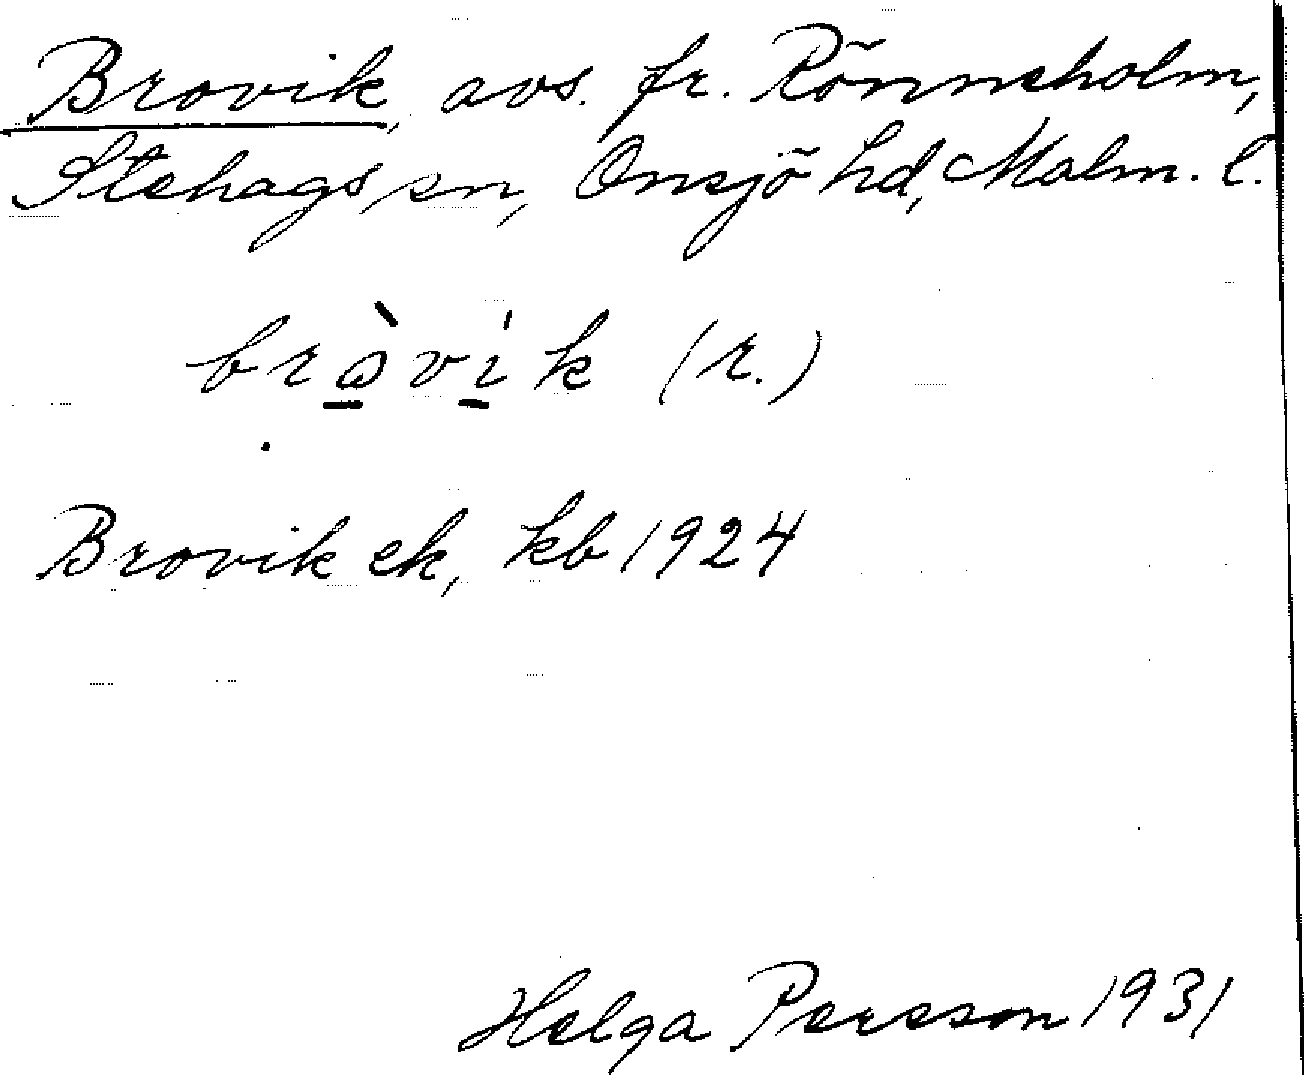 Brovik, avs. fr. Rönneholm,
Stehags sn, Onsjö hd, Malm. l.
bròvik (r.)
Brovik ek, kb 1924
Helga Persson 1931